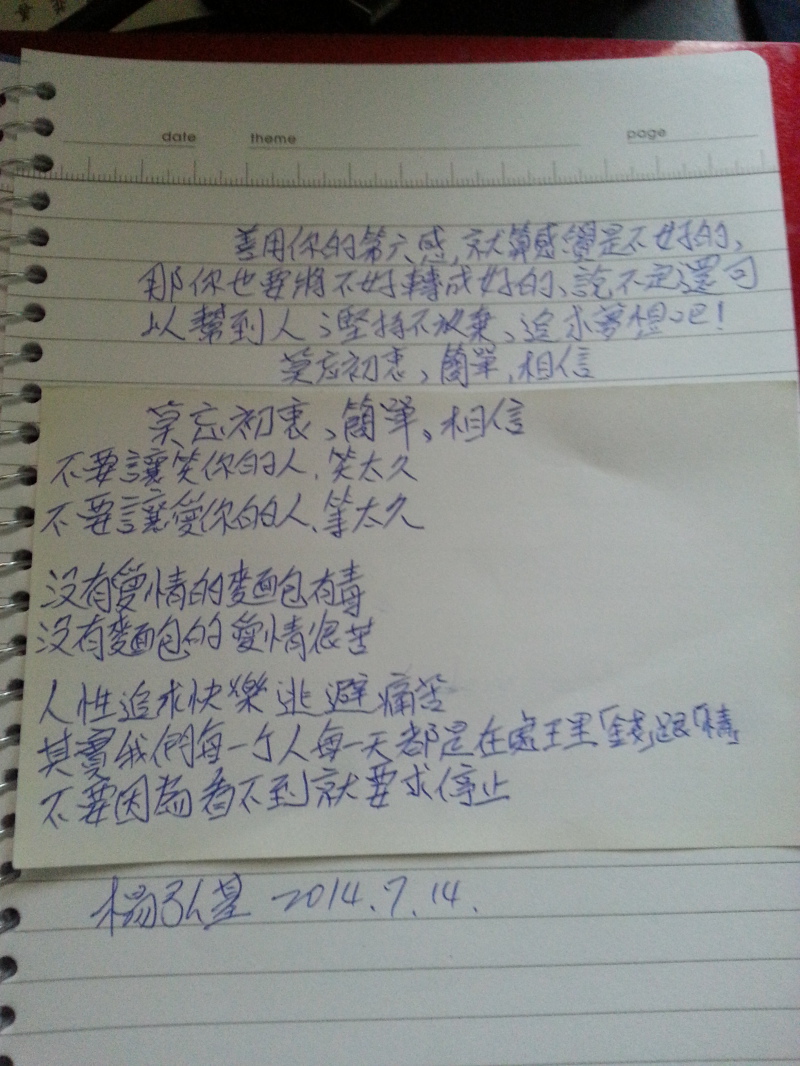 date theme page
善用你的第六感,就算感覺是不好的、
那你也要將不好轉成好的、說不定還可
以幫到人;堅持不放棄、追求夢想吧!
莫忘初衷、簡單,相信
莫忘初衷、簡單、相信
不要讓笑你的人.笑太久
不要讓愛你的人.等太久
沒有愛情的麵包有毒
沒有麵包的愛情很苦
人性追求快樂逃避痛苦
其實我們每一個人每一天都是在處理「錢」跟「情」
不要因為看不到就要求停止
楊弘基 2014.7.14.